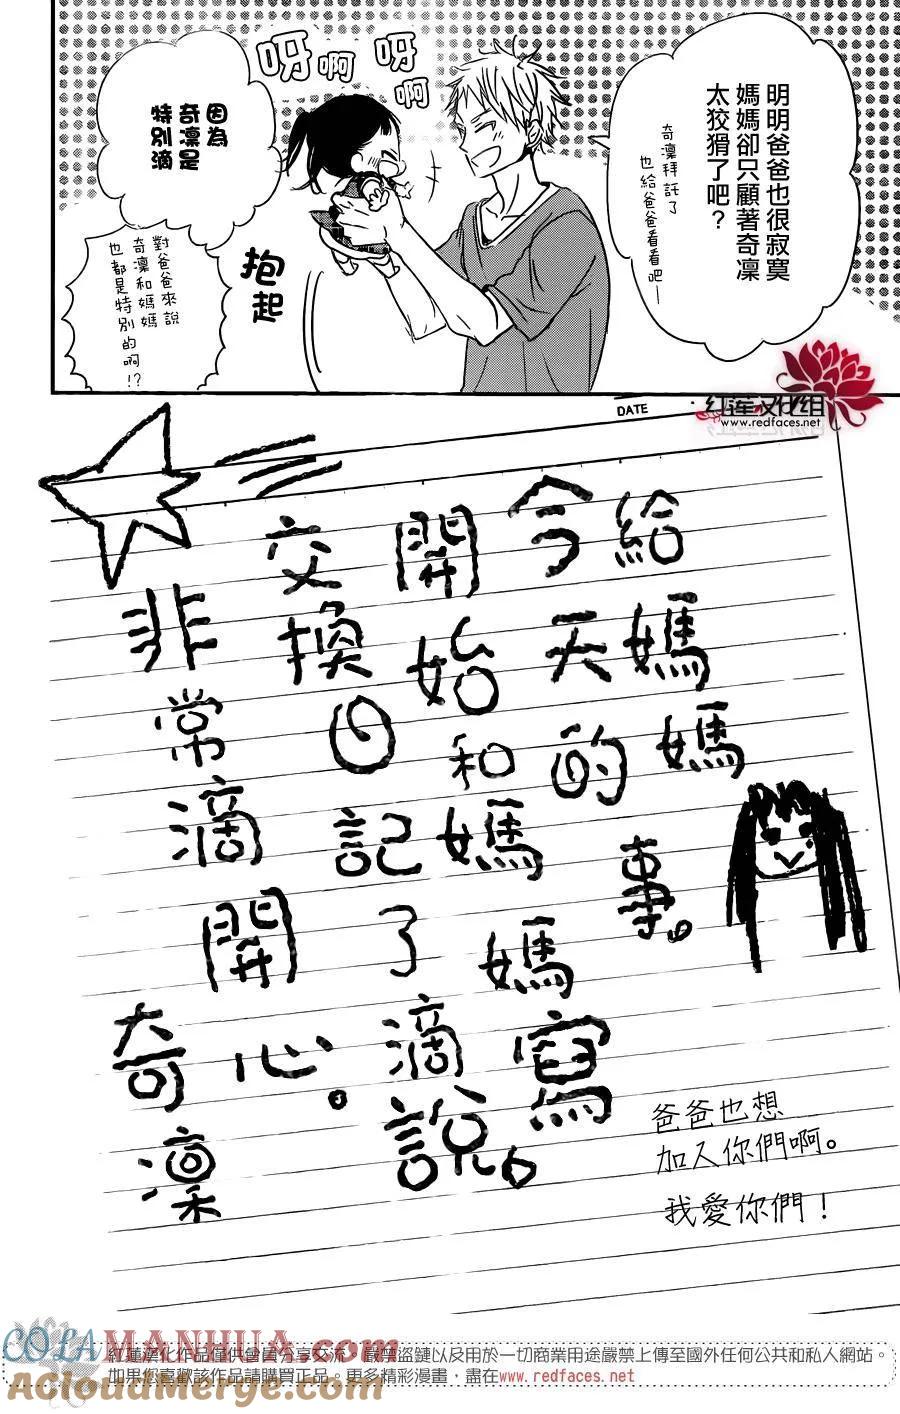 明明爸爸也很寂寞
媽媽卻只顧著奇凜
太狡猾了吧？
奇凜拜託了
也給爸爸看看吧—
呀啊呀啊
因為
奇凜是
特別滴
抱起
對爸爸來說
奇凜和媽媽
也都是特別的啊!?
红莲汉化组
www.redfaces.net
DATE
給媽媽
今天的事。
開始和媽媽寫
交換日記了滴說。
非常滴開心。
奇凜
爸爸也想
加入你們啊。
我愛你們！
COLAMANHUA.COM
AcloudMerge.com
红莲漢化作品僅供會員分享交流，嚴禁盜鏈以及用於一切商業用途嚴禁上傳至國外任何公共和私人網站。
如果您喜歡該作品請購買正品。更多精彩漫畫，盡在www.redfaces.net